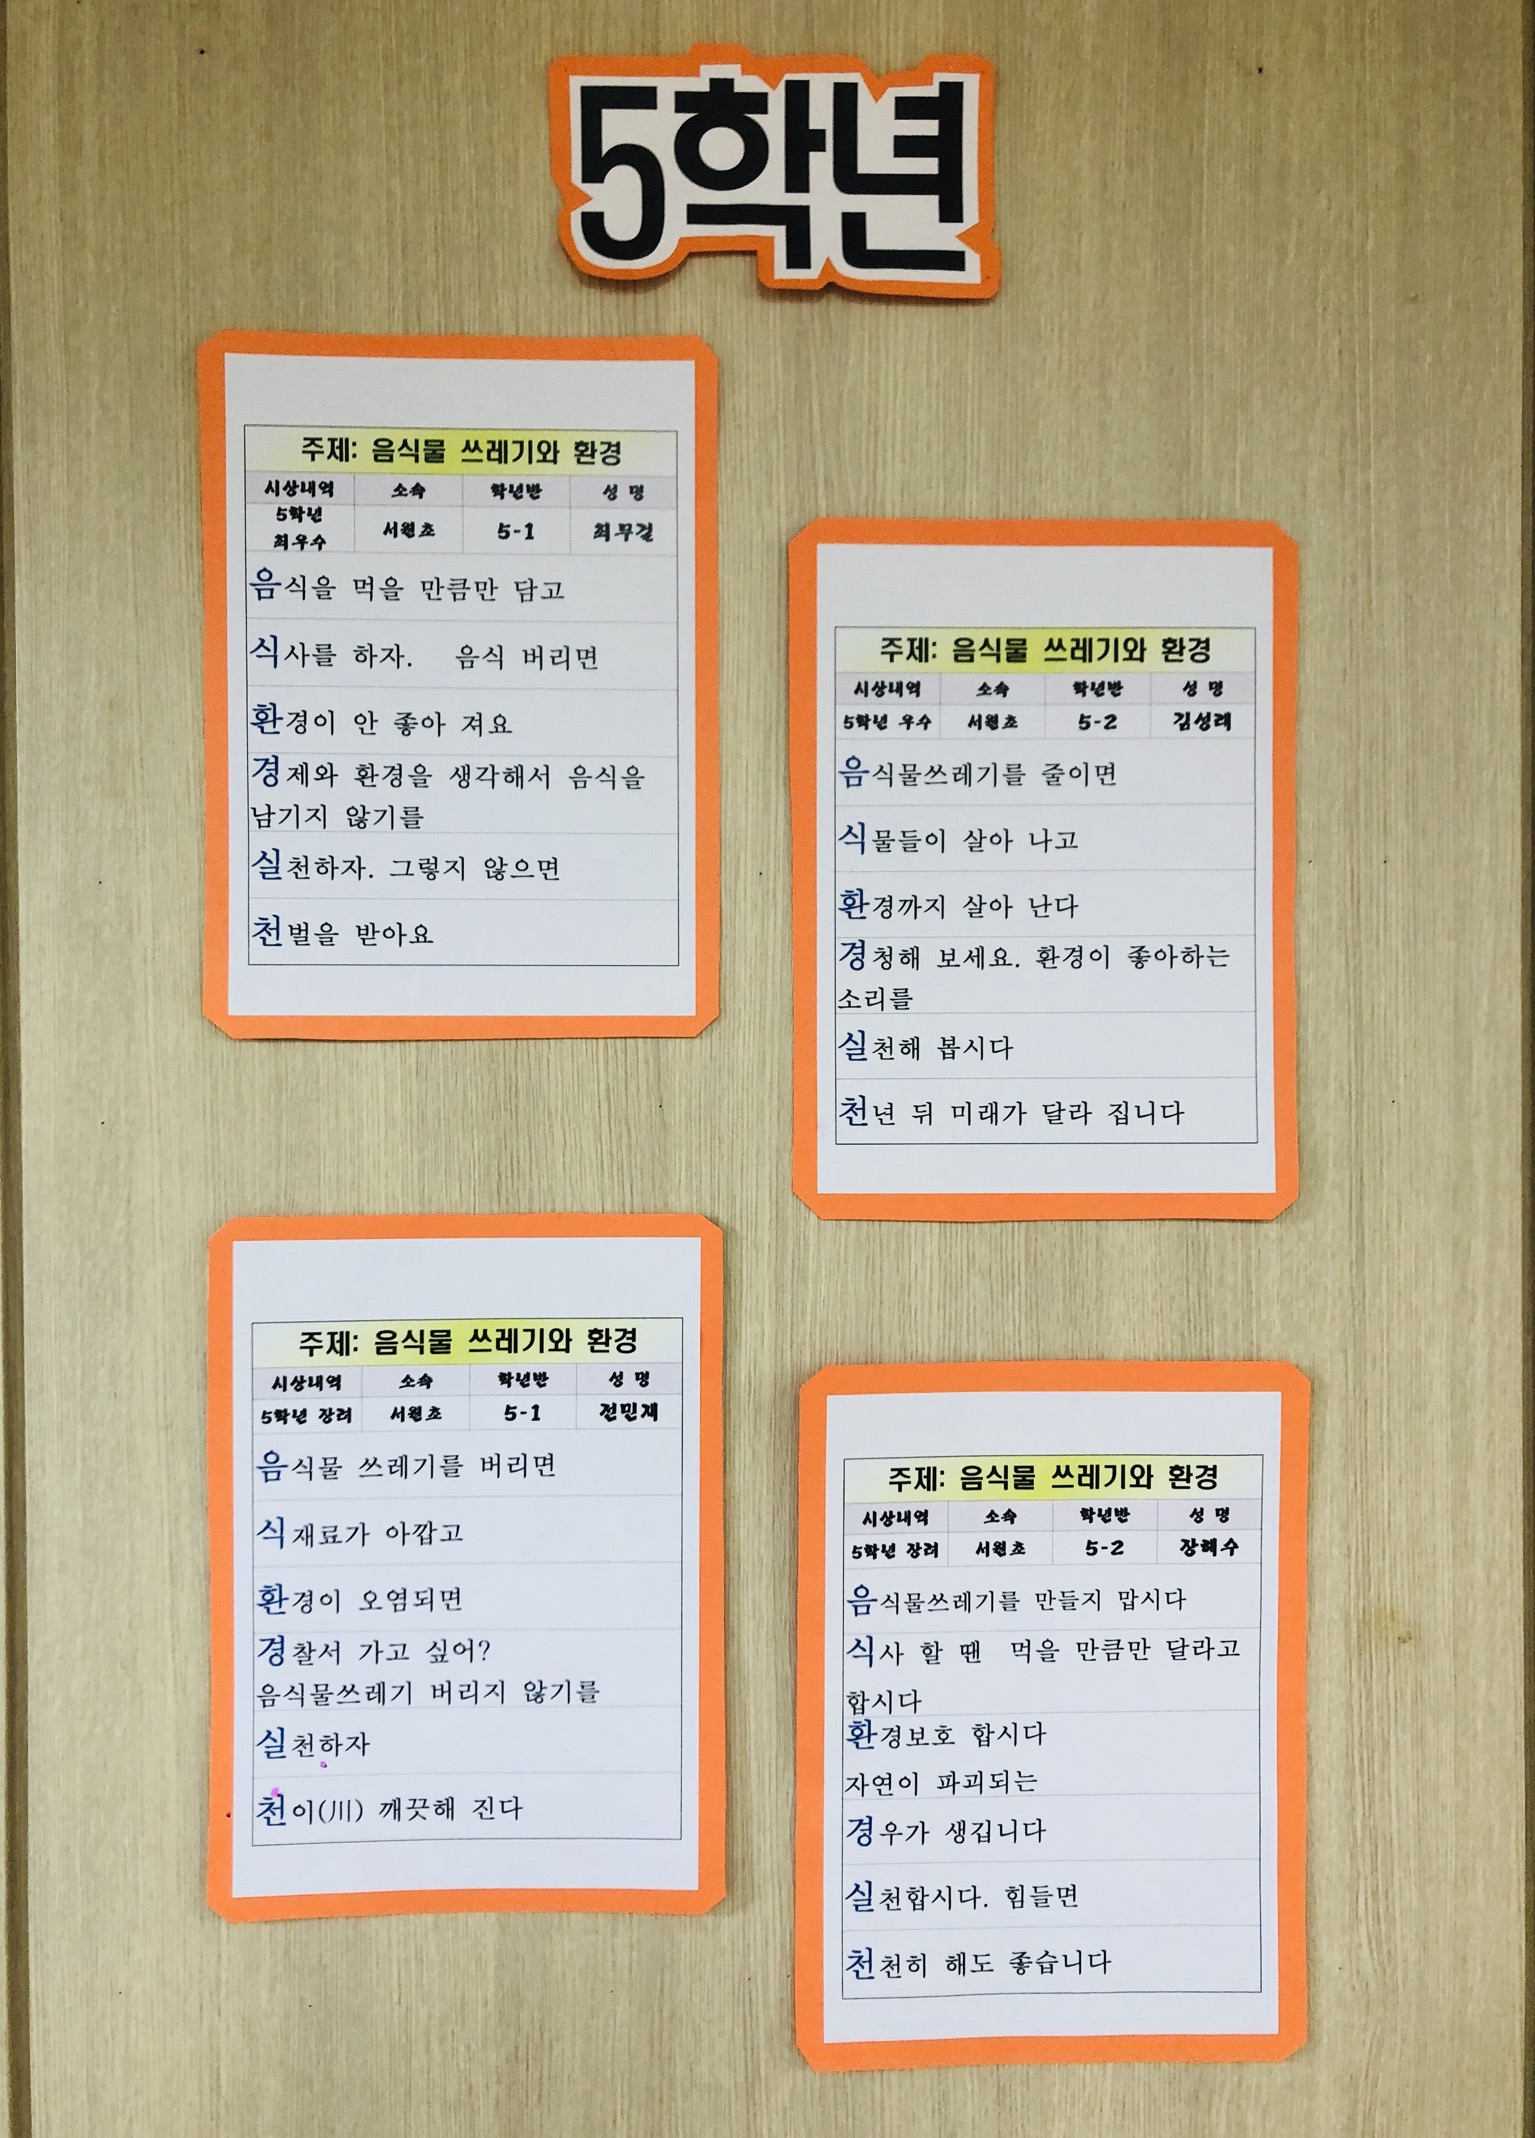 5학년
주제: 음식물 쓰레기와 환경
시상내역 소속 학년반 성 명
5학년 최우수 서원초 5-1 최무걸
음식을 먹을 만큼만 담고
식사를 하자. 음식 버리면
환경이 안 좋아 져요
경제와 환경을 생각해서 음식을
남기지 않기를
실천하자. 그렇지 않으면
천벌을 받아요
주제: 음식물 쓰레기와 환경
시상내역 소속 학년반 성 명
5학년 우수 서원초 5-2 김성래
음식물쓰레기를 줄이면
식물들이 살아 나고
환경까지 살아 난다
경청해 보세요. 환경이 좋아하는
소리를
실천해 봅시다
천년 뒤 미래가 달라 집니다
주제: 음식물 쓰레기와 환경
시상내역 소속 학년반 성 명
5학년 장려 서원초 5-1 전민재
음식물 쓰레기를 버리면
식재료가 아깝고
환경이 오염되면
경찰서 가고 싶어?
음식물쓰레기 버리지 않기를
실천하자
천이(川) 깨끗해 진다
주제: 음식물 쓰레기와 환경
시상내역 소속 학년반 성 명
5학년 장려 서원초 5-2 장혜수
음식물쓰레기를 만들지 맙시다
식사 할 땐 먹을 만큼만 달라고
합시다
환경보호 합시다
자연이 파괴되는
경우가 생깁니다
실천합시다. 힘들면
천천히 해도 좋습니다